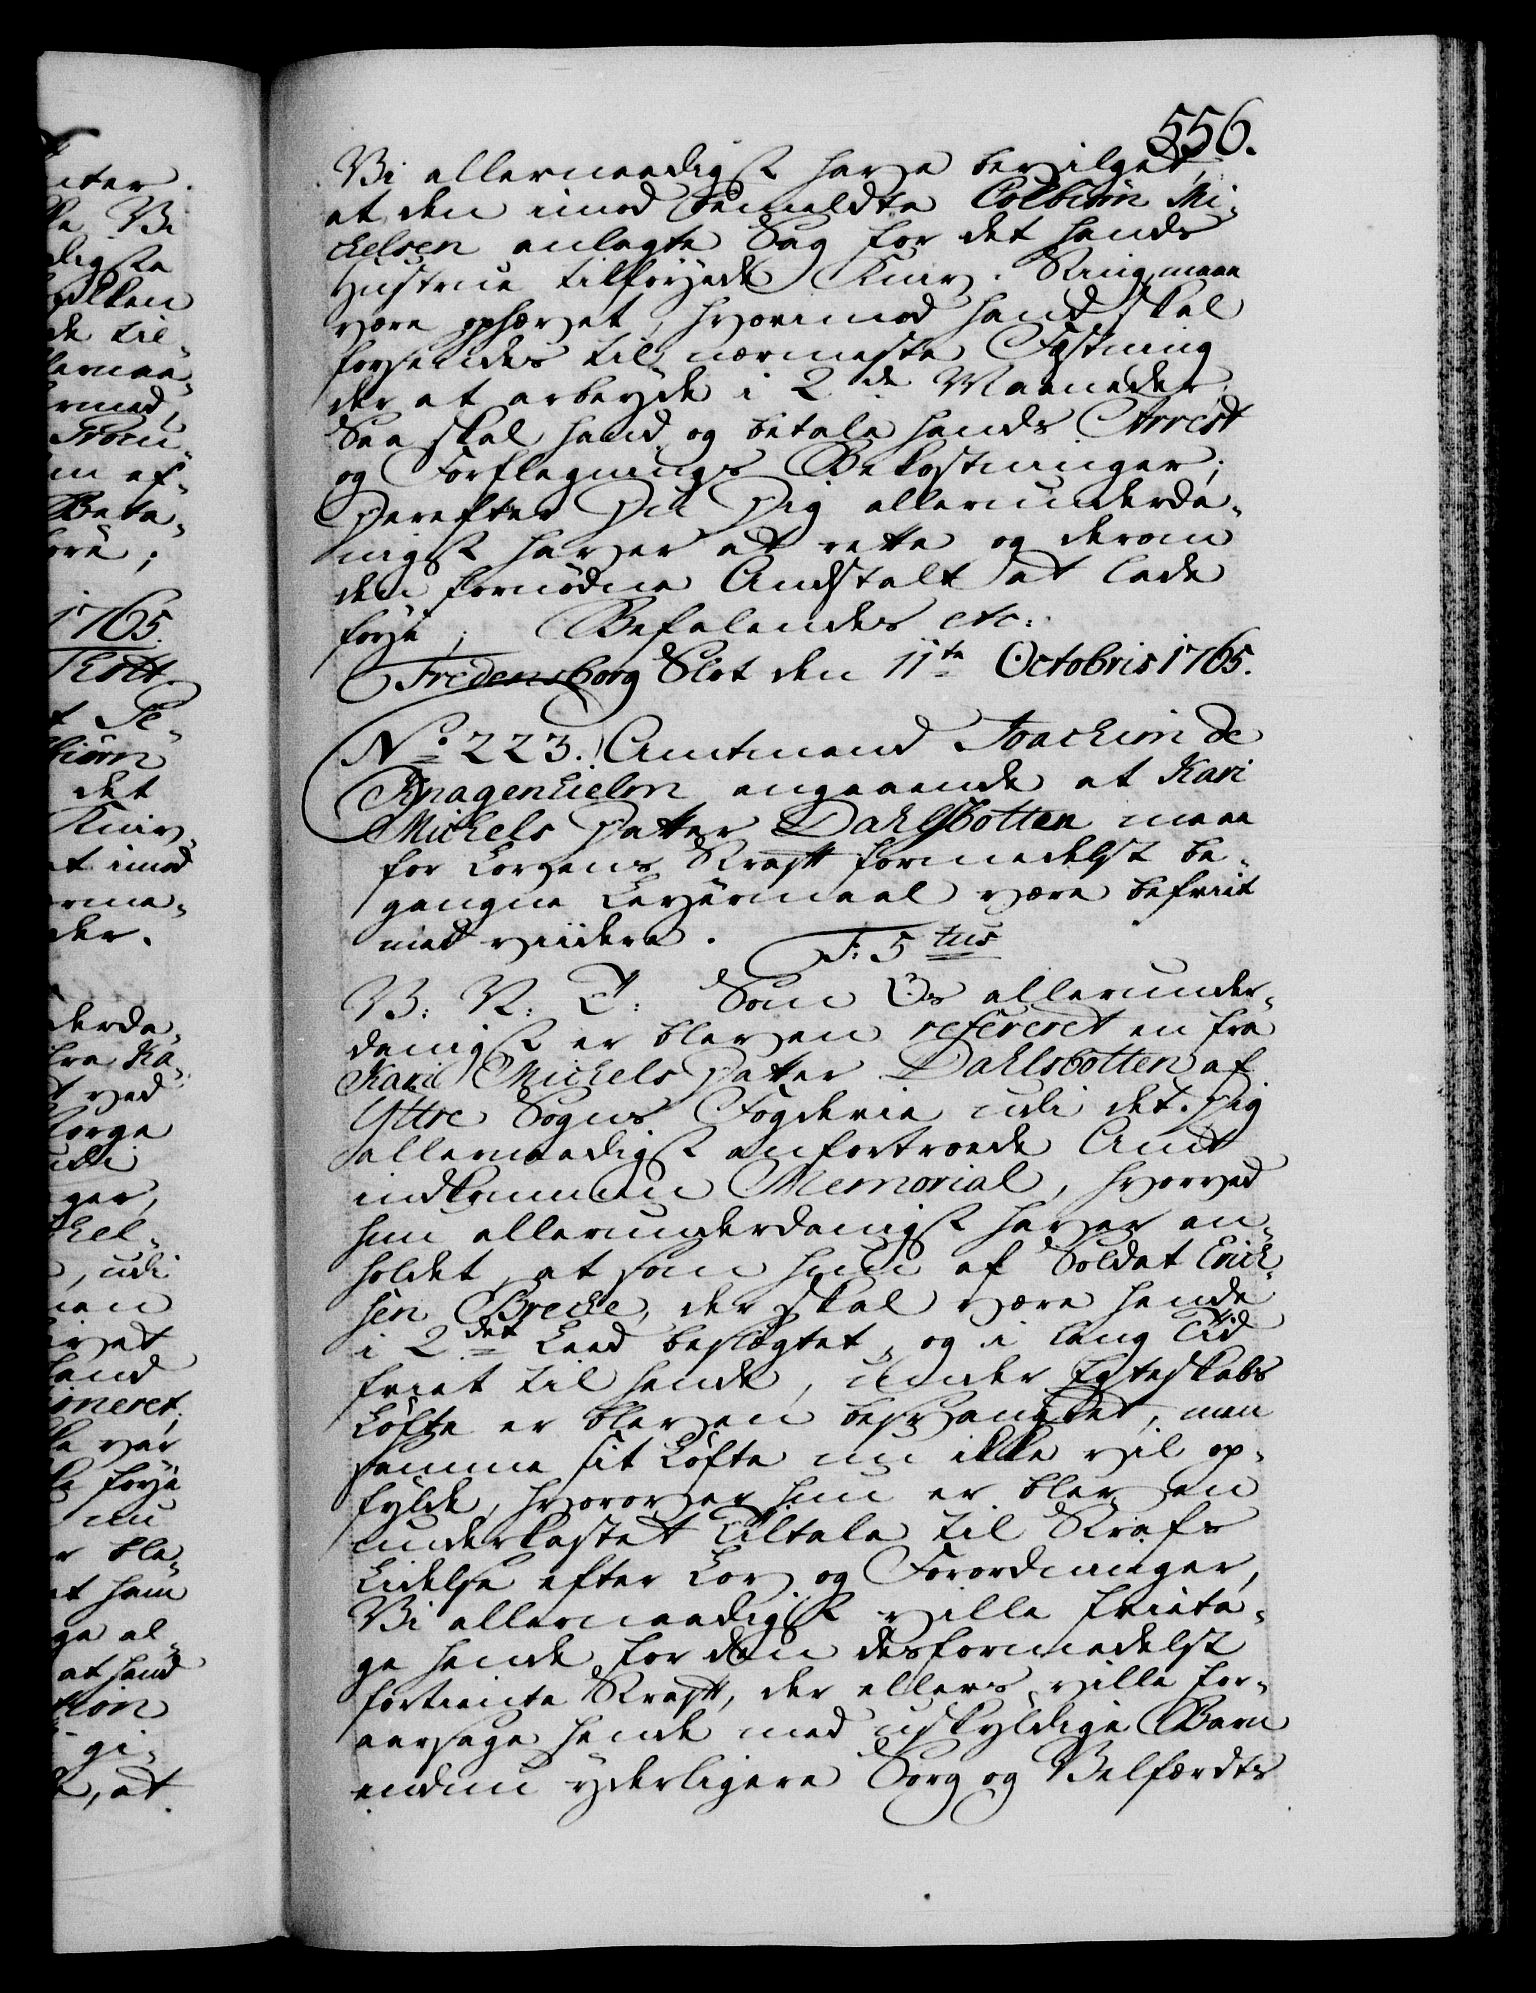 556.
Vi allernaadigst have bevilget,
at den imod bemeldte Colbiörn Mi-
chelsen anlagte Sag for det hands
Hustrue tilföyede Kniv-Sting maae
være ophævet, hvorimod hand skal
forsendes til nærmeste Fæstning
der at arbeyde i 2de Maaneder.
Saa skal hand og betale hands Arrest
og Forflegnings Bekostninger;
Derefter Du Dig allerunderda-
nigst haver at rette og derom
den fornödne Andstalt at lade
föye; Befalendes etc:
Fredensborg Slot den 11te Octobris 1765.
No 223. Amtmand Joachim de
Knagenhielm angaaende at Kari
Michels Datter Dahlsbotten maae
for Lovens Straff formedelst be-
gangne Leyermaal være befriet
med viidere. F: 5tus
V: N: T: Som Os allerunder-
danigst er bleven refereret en fra
Kari Michels Datter Dahlsbotten af
Yttre Sogns Fogderie udi det Dig
allernaadigst anfortroede Amt
indkommen Memorial, hvorved
hun allerunderdanigst haver an-
holdet, at som hun af Soldat Erich-
sen Brecke, der skal være hende
i 2det Leed beslægtet, og i lang Tid
friet til hende, under Egteskabs
Löfte er bleven besvangret, men
samme sit Löfte nu ikke vil op-
fylde, hvorover hun er bleven
underkastet Tiltale til Strafs
Lidelse efter Lov og Forordninger,
Vi allernaadigst ville friita-
ge hende for den desformedelst
fortiente Straff, der ellers ville for-
aarsage hende med uskyldige Barn
endnu yderligere Sorg og Velfærdts